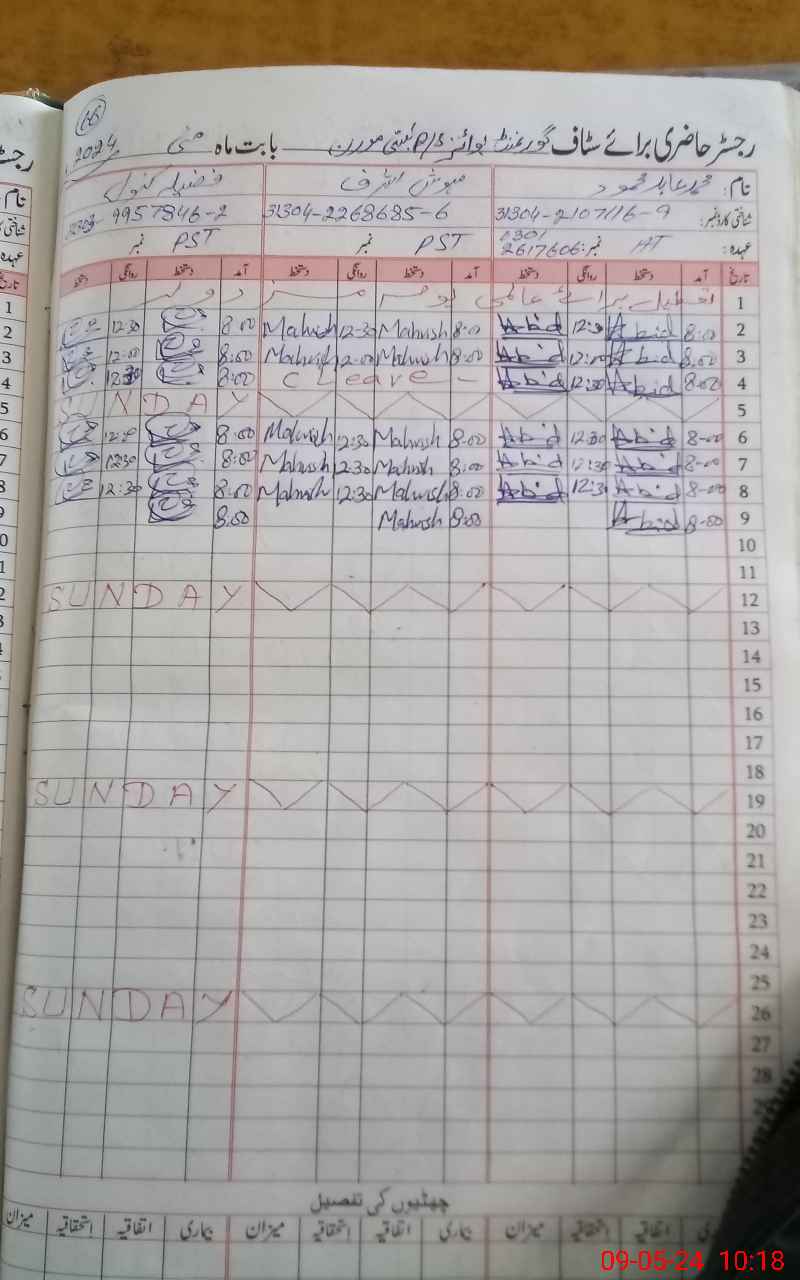 16
رجسٹر حاضری برائے سٹاف گورنمنٹ بوائز P/S بستی مورن بابت ماہ مئی 2024
نام: محمد عابد محمود مہوش اشرف فضیلہ کنول
شناختی کارڈ نمبر: 31304-2107116-9 31304-2268685-6 9957846-2
عہدہ: HT نمبر: 2617606 PST نمبر PST نمبر
تاریخ آمد دستخط روانگی دستخط آمد دستخط روانگی دستخط آمد دستخط روانگی دستخط
1 تعطیل برائے عالمی یوم مزدور
2 8:00 Abid 12:30 Abid 8:00 Mahwish 12:30 Mahwish 8:00 12:30
3 8:00 Abid 12:00 Abid 8:00 Mahwish 12:00 Mahwish 8:00 12:00
4 8:00 Abid 12:30 Abid C Leave - 8:00 12:30
5 SUNDAY
6 8-00 Abid 12:30 Abid 8:00 Mahwish 12:30 Mahwish 8:00
7 8-00 Abid 12:30 Abid 8:00 Mahwish 12:30 Mahwish 8:00 12:30
8 8-00 Abid 12:30 Abid 8:00 Mahwish 12:30 Mahwish 8:00 12:30
9 8-00 Abid 8:00 Mahwish 8:00
10
11
12 SUNDAY
13
14
15
16
17
18
19 SUNDAY
20
21
22
23
24
25
26 SUNDAY
27
28
چھٹیوں کی تفصیل
اتفاقیہ استحقاقیہ میزان بیماری اتفاقیہ استحقاقیہ میزان بیماری اتفاقیہ استحقاقیہ میزان
09-05-24 10:18